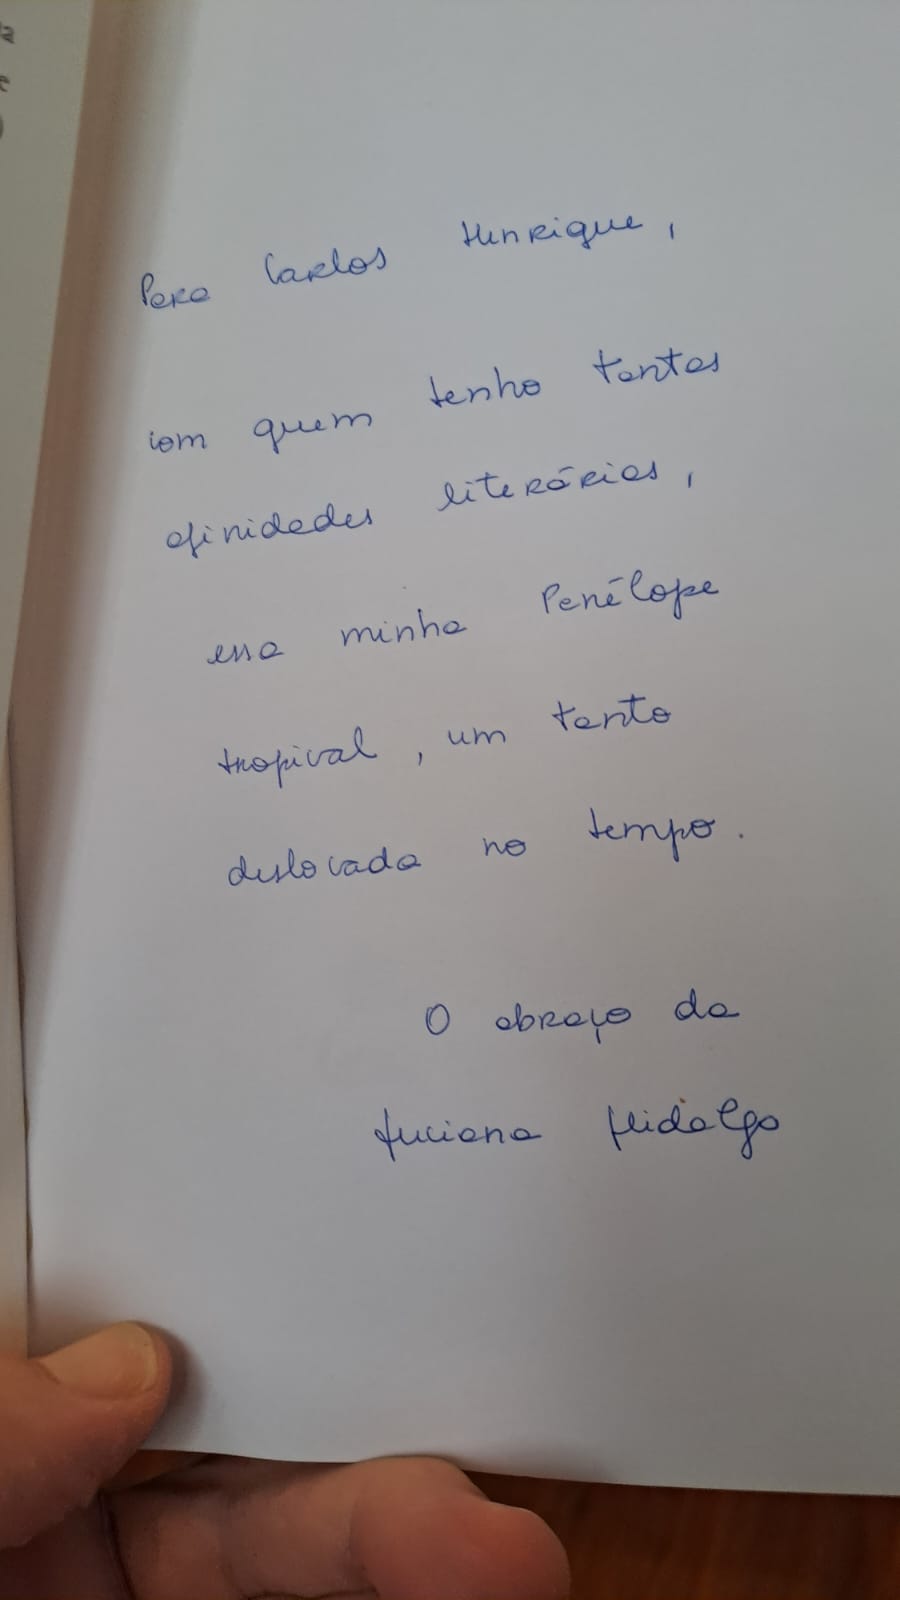 Para Carlos Henrique,
com quem tenho tantas
afinidades literárias,
essa minha Penélope
tropical, um tanto
deslocada no tempo.
O abraço da
Luciana Hidalgo